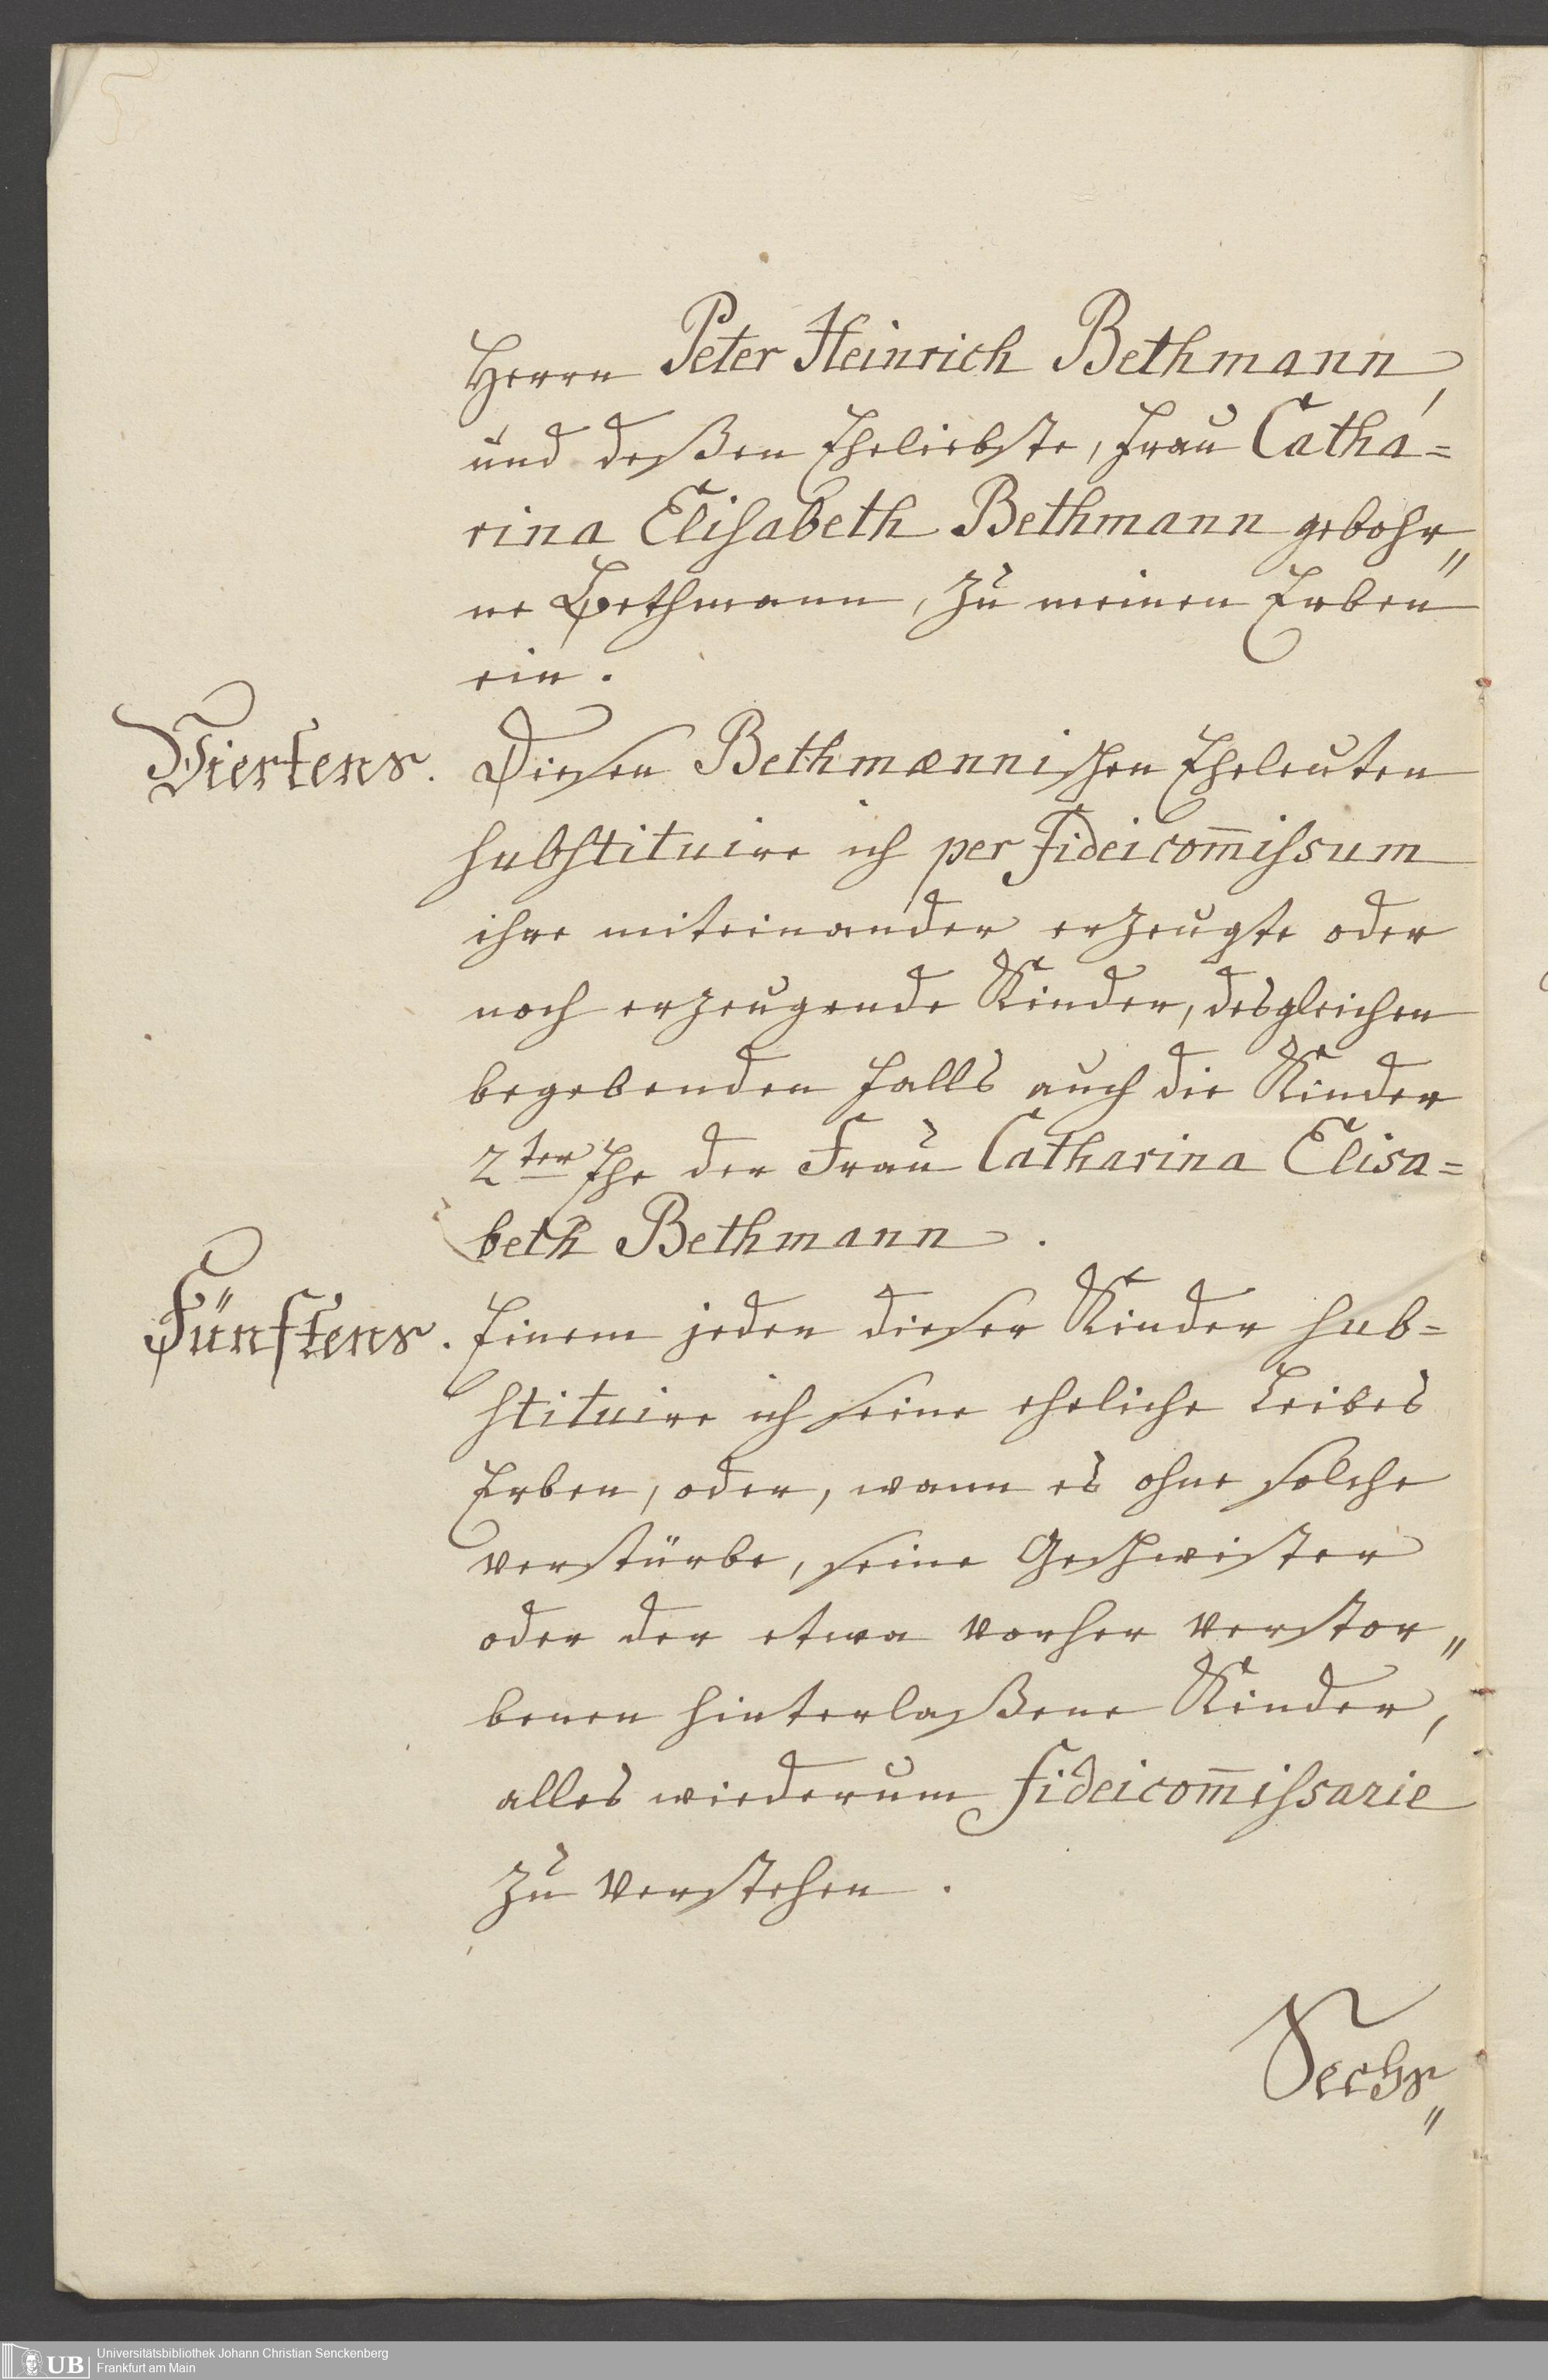 Herrn Peter Heinrich Bethmann,
und deßen Eheliebste, Frau Catha=
rina Elisabeth Bethmann gebohr„
ne Bethmann, zu meinen Erben
ein.
Viertens. Diesen Bethmænnischen Eheleuten
substituire ich per fideicom̅issum
ihre miteinander erzeugte oder
noch erzeugende Kinder, desgleichen
begebenden Falls auch die Kinder
2ter Ehe der Frau Catharina Elisa=
beth Bethmann.
Fünftens. Einem jeden dieser Kinder sub=
stituire ich seine eheliche Leibes
Erben, oder, wann es ohne solche
verstürbe, seine Geschwister
oder der etwa vorher verstor„
benen hinterlaßene Kinder,
alles wiederum fideicom̅issarie
zu verstehen.
Sechs„
UB Universitätsbibliothek Johann Christian Senckenberg
Frankfurt am Main